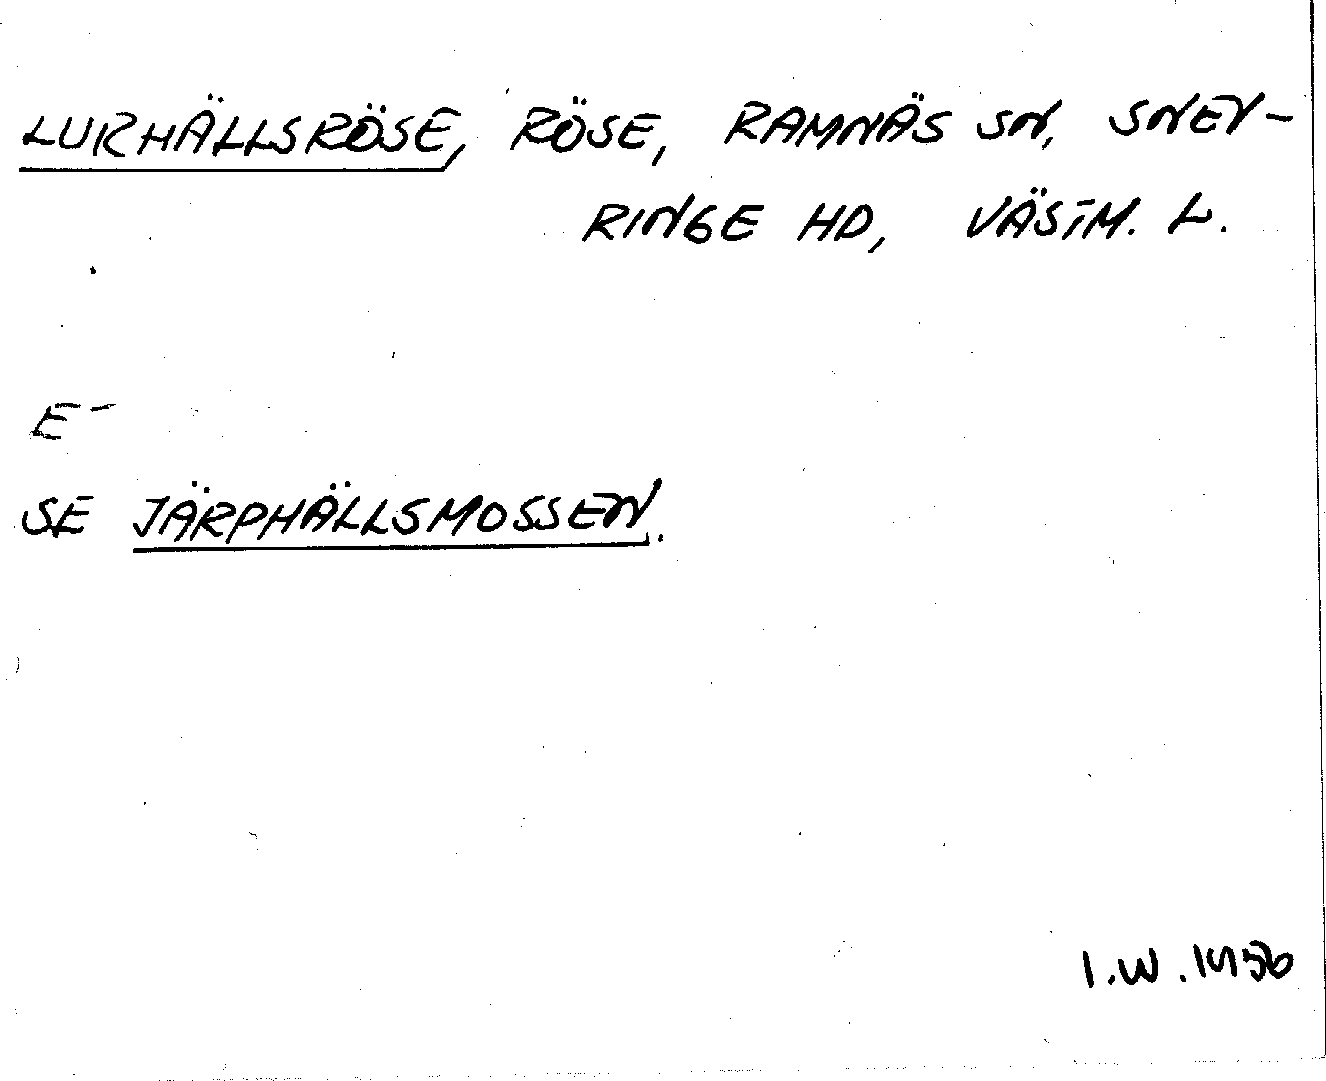 LURHÄLLSRÖSE, RÖSE, RAMNÄS SN, SNEV-
RINGE HD, VÄSTM. L.
E-
SE JÄRPHÄLLSMOSSEN.
I.W. 1956